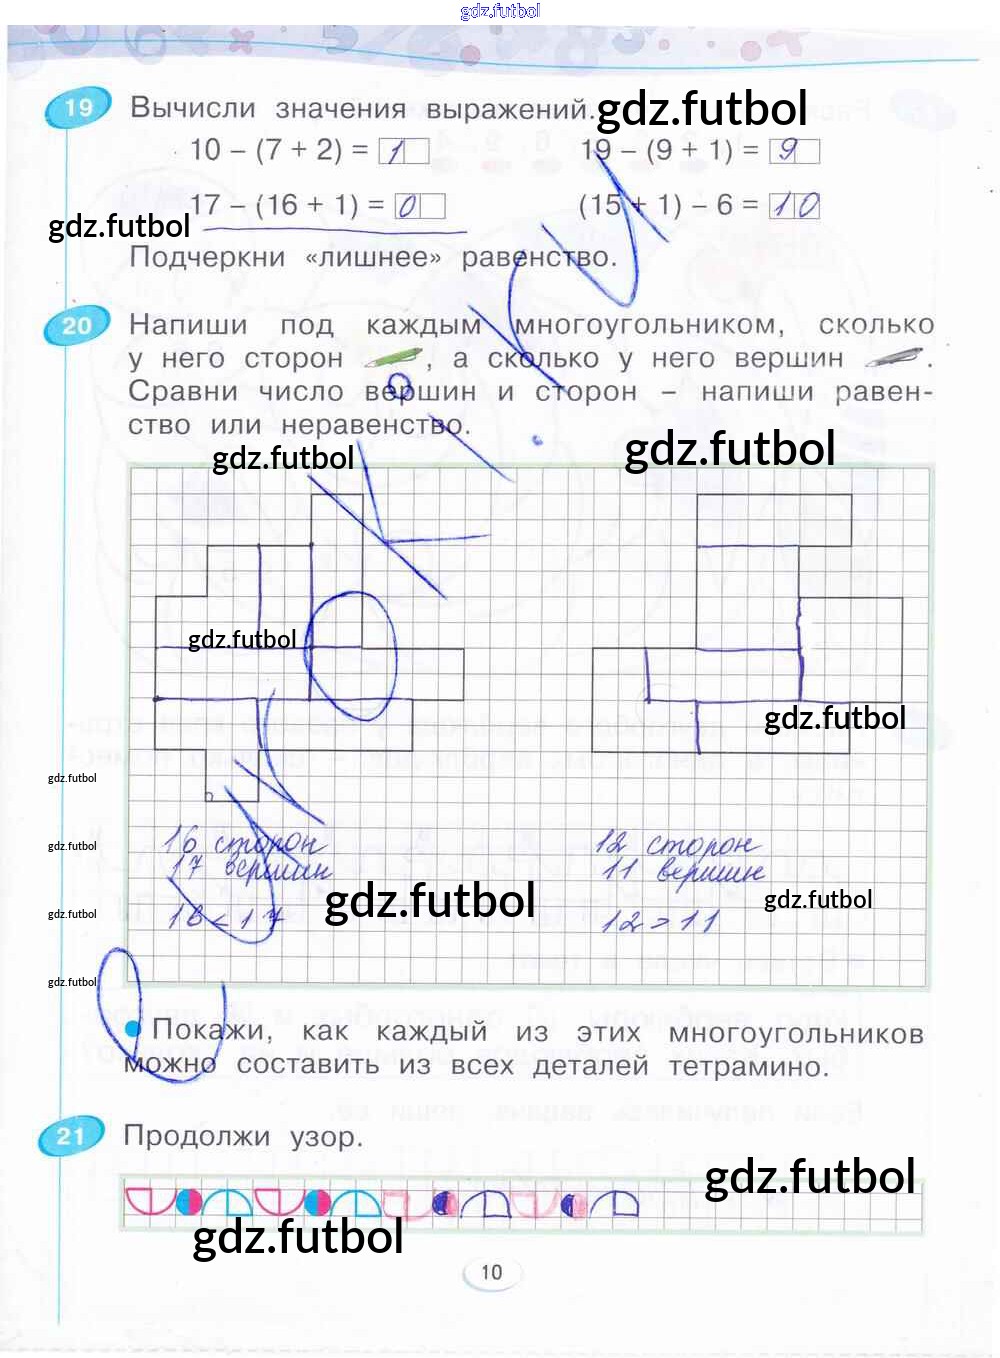 gdz.futbol
19 Вычисли значения выражений.
gdz.futbol
10 – (7 + 2) = 1
19 – (9 + 1) = 9
17 – (16 + 1) = 0
(15 + 1) – 6 = 10
gdz.futbol
Подчеркни «лишнее» равенство.
20 Напиши под каждым многоугольником, сколько
у него сторон , а сколько у него вершин .
Сравни число вершин и сторон – напиши равен-
ство или неравенство.
gdz.futbol
gdz.futbol
gdz.futbol
gdz.futbol
gdz.futbol
16 сторон
12 сторон
gdz.futbol
17 вершин
11 вершин
gdz.futbol
gdz.futbol
gdz.futbol
16 < 17
12 > 11
gdz.futbol
Покажи, как каждый из этих многоугольников
можно составить из всех деталей тетрамино.
21 Продолжи узор.
gdz.futbol
gdz.futbol
10